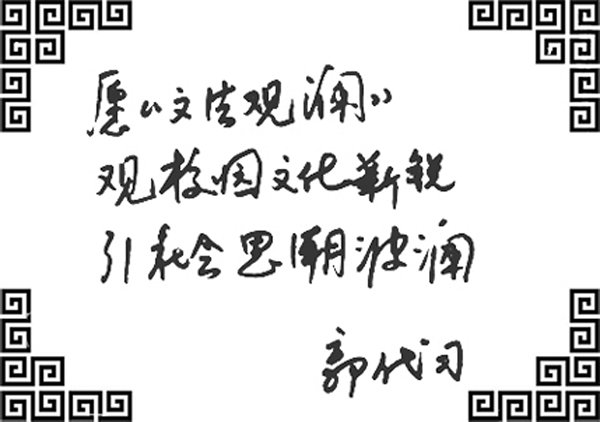 愿《文法观澜》
观校园文化新锐
引社会思潮波澜
郭代习